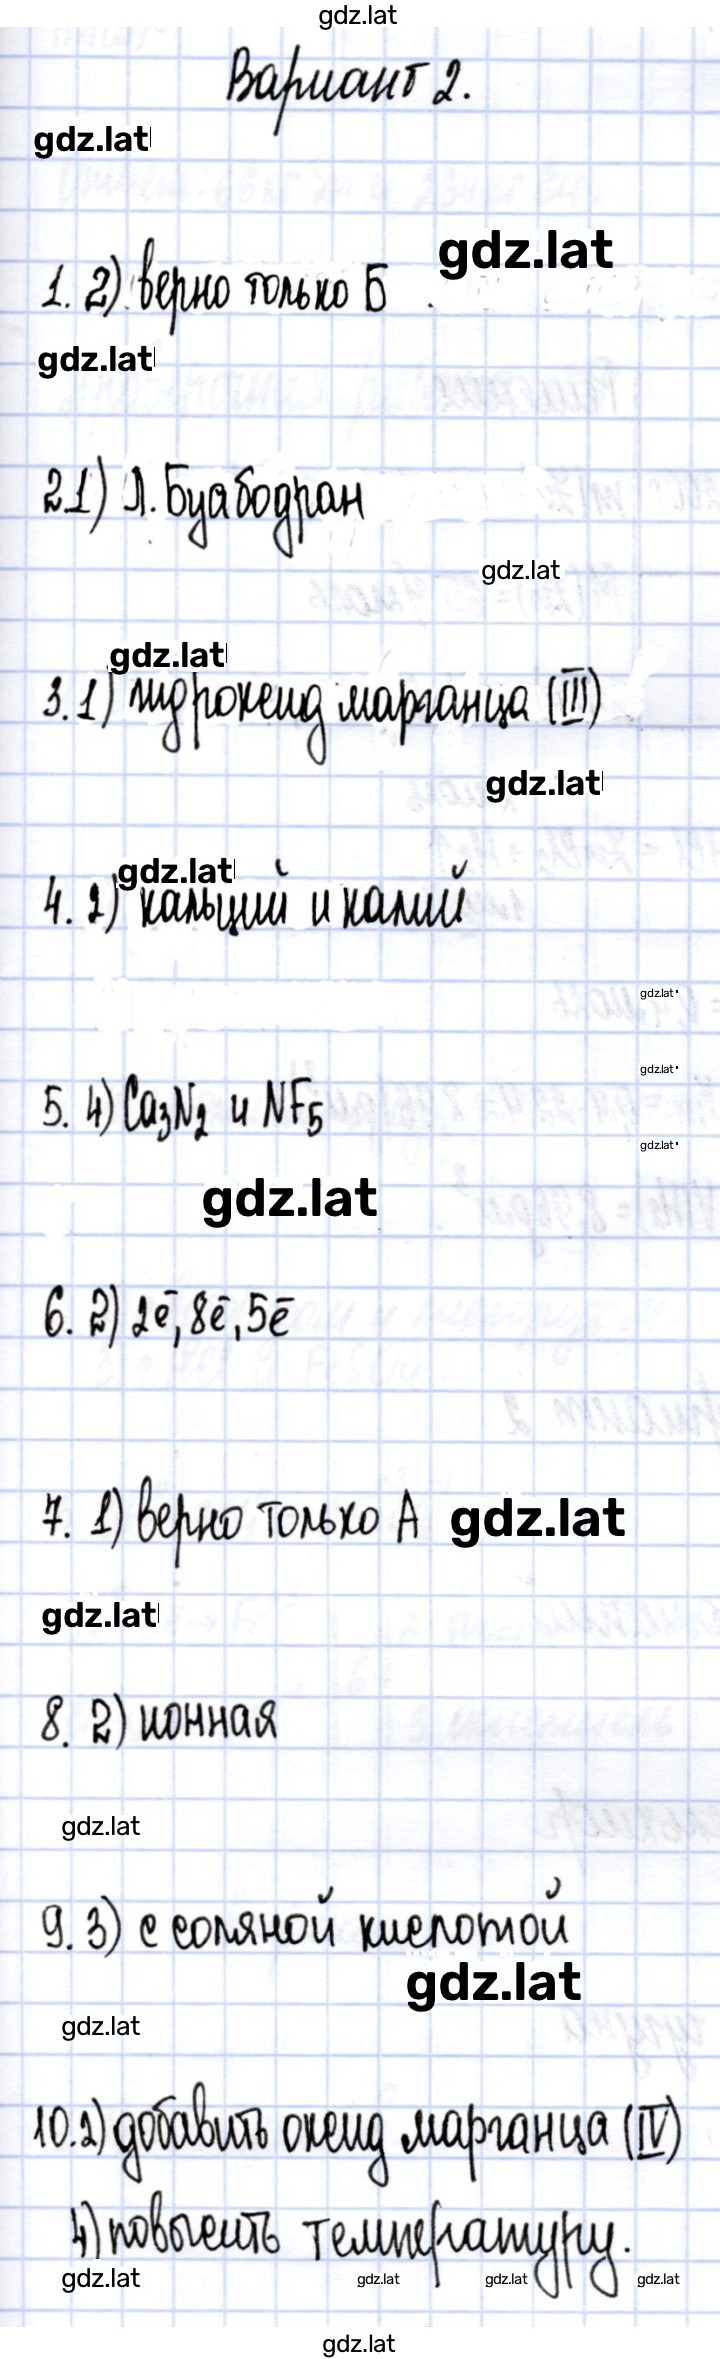 gdz.lat
Вариант 2.
gdz.lat
gdz.lat
1. 2) верно только Б
gdz.lat
2.1) Л. Буабодран
gdz.lat
gdz.lat
3. 1) гидроксид марганца (III)
gdz.lat
gdz.lat
4. 2) кальций и калий
gdz.lat
gdz.lat
5. 4) Ca₃N₂ и NF₅
gdz.lat
gdz.lat
6. 2) 2ē, 8ē, 5ē
7. 1) верно только А gdz.lat
gdz.lat
8. 2) ионная
gdz.lat
9. 3) с соляной кислотой
gdz.lat
gdz.lat
10. 2) добавить оксид марганца (IV)
4) повысить температуру.
gdz.lat gdz.lat gdz.lat gdz.lat
gdz.lat